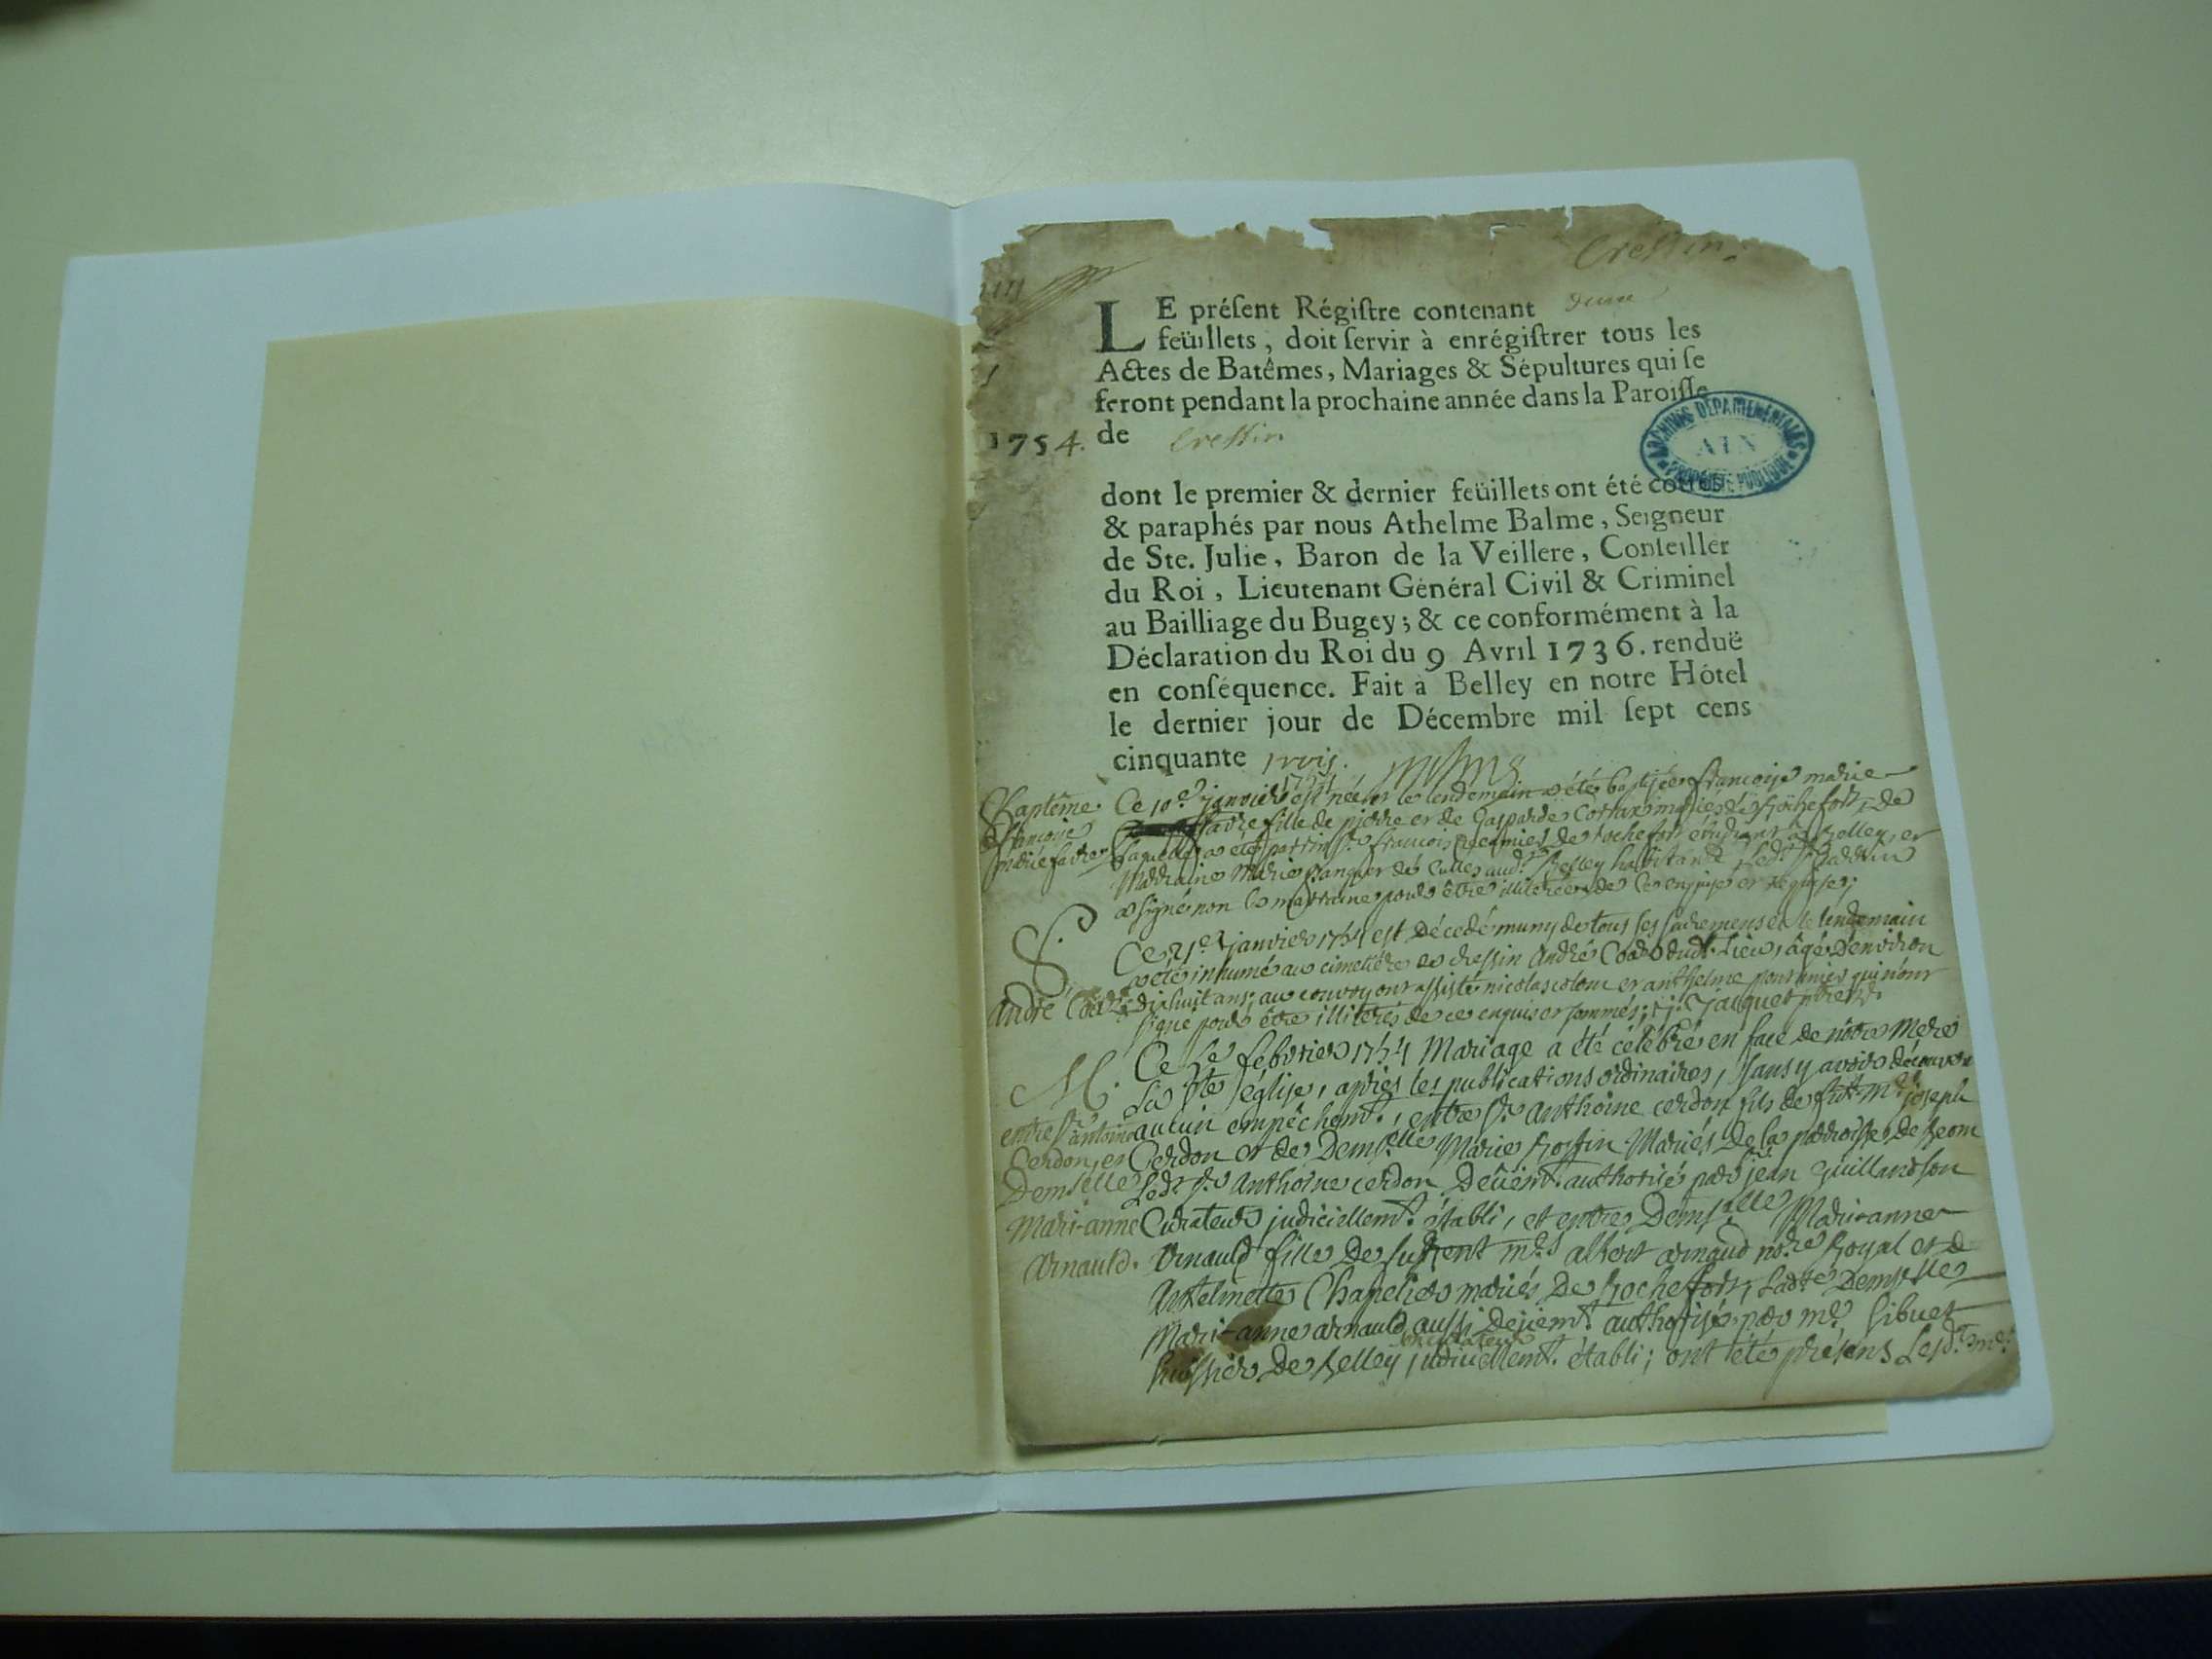 Cressin.
LE préſent Régiſtre contenant
feüillets, doit ſervir à enrégiſtrer tous les
Actes de Batêmes, Mariages & Sépultures qui ſe
feront pendant la prochaine année dans la Paroiſſe
1754. de Cressin
ARCHIVES DÉPARTEMENTALES
AIN
PROPRIÉTÉ PUBLIQUE
dont le premier & dernier feüillets ont été cottés
& paraphés par nous Athelme Balme, Seigneur
de Ste. Julie, Baron de la Veillere, Conſeiller
du Roi, Lieutenant Général Civil & Criminel
au Bailliage du Bugey; & ce conformément à la
Déclaration du Roi du 9 Avril 1736. renduë
en conſéquence. Fait à Belley en notre Hôtel
le dernier jour de Décembre mil ſept cens
cinquante trois.
Baptême Ce 10e janvier 1754 est née et le lendemain a été baptisée françoise marie
françoise favre fille de pierre et de Gasparde mariés de Rochefort, de
marie favre laquelle a été parrin sr. françois de rochefort étudiant à Belley, et
Marraine Marie de Culles aud. Belley habitante, led. sr. Parrin
a signé non la marraine pour être illiterée de ce enquise et requise;
S. Ce 21e janvier 1754 est Décedé muny de tous ses sacremens et le lendemain
a été inhumé au cimetière de cressin André dud. Lieu, âgé d'environ
André dixhuit ans; au convoy ont assisté nicolas colom et anthelme qui n'ont
signé pour être illiterés de ce enquis et sommés; j. Jacquet
M. Ce 5e febvrier 1754 Mariage a été célébré en face de nôtre Mere
La Ste église, après les publications ordinaires, sans y avoir découvert
entre sr. antoine aucun empêchemt., entre sr. Anthoine cerdon fils de fût mre. joseph
Cerdon, et Cerdon et de Demselle Marie Rossin Mariés De la parroisse De
Demselle Ledt. sr. Anthoine cerdon Deüemt. authorisé par sr. jean Guilland son
Mari-anne Curateur judiciellemt. établi, et entre Demselle Mari-anne
Arnauld. Arnauld fille De mre. albert arnaud nore. Royal et de
Antelmette Chapelier mariés De Rochefort, Ladte Demselle
Mari-anne arnauld aussi Deüemt. authorisée par mre. Sibuet
curateur
huissier De Belley judiciellemt. établi; ont été présens Lesdt. mre.